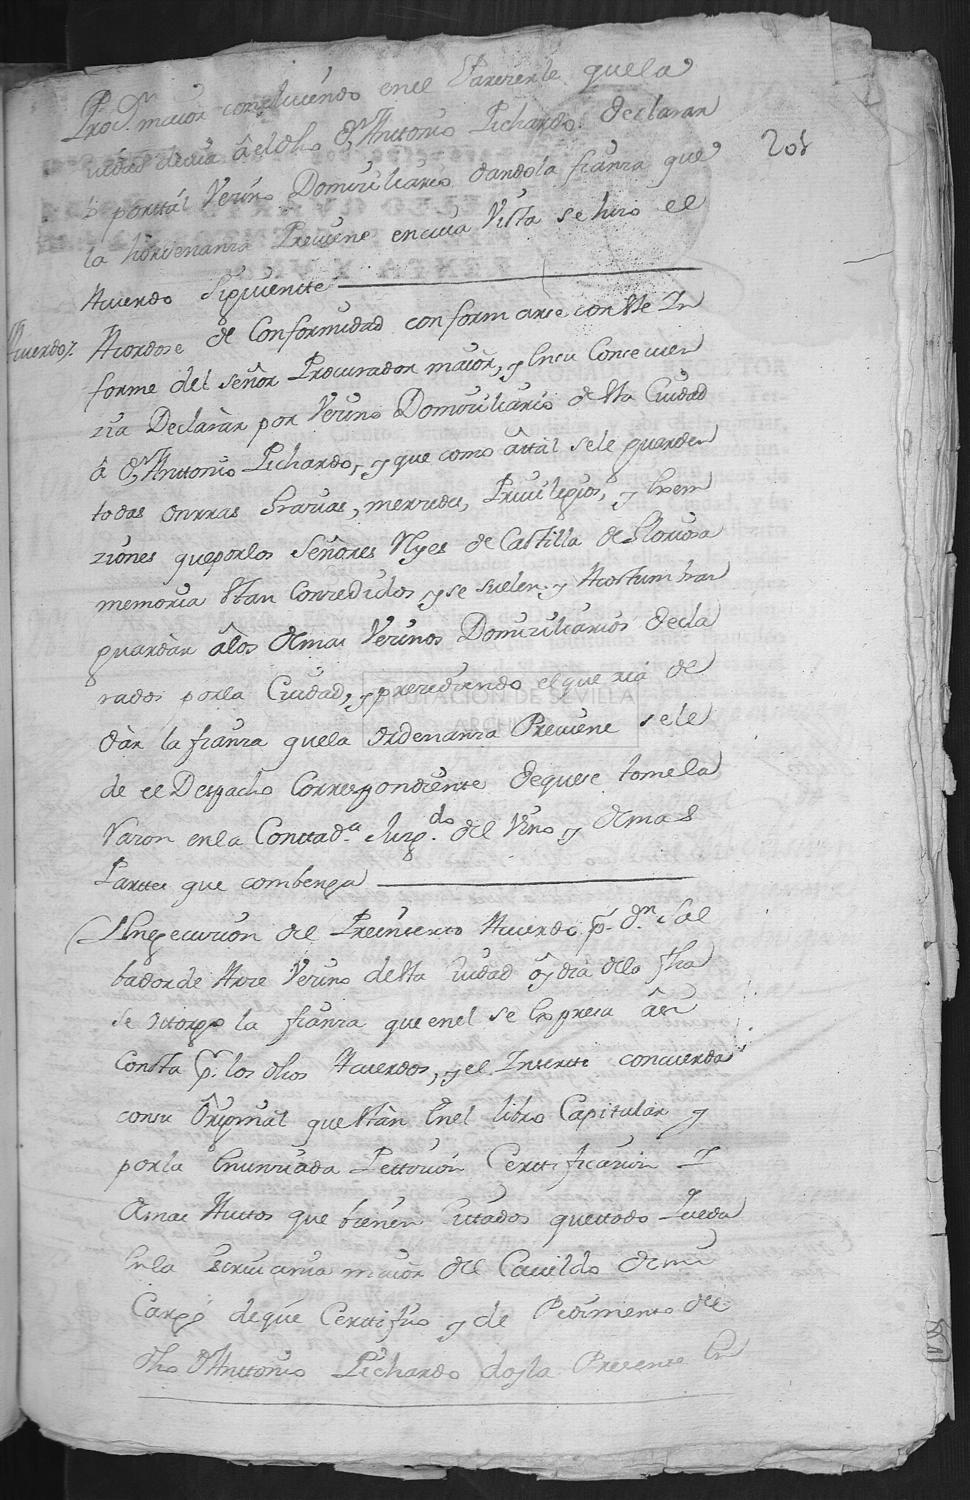 Proc.r maior concluiendo en el Parezerle quela
ciudad devia â el dho Dn Anttonio Pichardo declarar
lo por tal Vezino Domiziliario dandola fianza que
la hordenanza Previene en cuia Vista se hizo el
Acuerdo Siguiente
Acuerdo/.
201
Acordose de Conformidad conformarse con Este In
forme del señor Procurador maior, y En su Consecuen
zia Declaràr por Vezino Domiziliario de Esta Ciudad
â Dn Anttonio Pichardo, y que como âtal sele guarden
todas onrras Grazias, merzedes, Privilegios, y Exsem
ziones que por los Señores Reyes de Castilla de Gloriosa
memoria Estan Conzedidos, y se suelen, y Acostumbran
guardàr alos demas Vezinos Domiziliarios decla
rados por la Ciudad, y prezediendo el que ria de
dàr la fianza quela ordenanza Previene sele
de el Despacho Correspondiente de que se tome la
Razon en la Conttad.a Juzg.do del Vino y demas
Parttes que combenga
En Exsecuzion del Preinserto Acuerdo p.r Dn. Sal
bador de Arze Vezino de Esta Ciudad oy dia dela fha
se otorgo la fianza que en el se Expresa âsi
Consta p.r los dhos Acuerdos, y el Inserto concuerda
con su Original que Estàn En el libro Capitular y
por la Enunziada Pettizión Certtificazion I
demas Auttos que bienen Cittados que ttodo Queda
En la Escrivania maior del Cavildo de mi
Cargo de que Certtifico y de Pedimiento del
dho Dn Anttonio Pichardo doy la Presente En
DIPUTACION DE SEVILLA
ARCHIVO